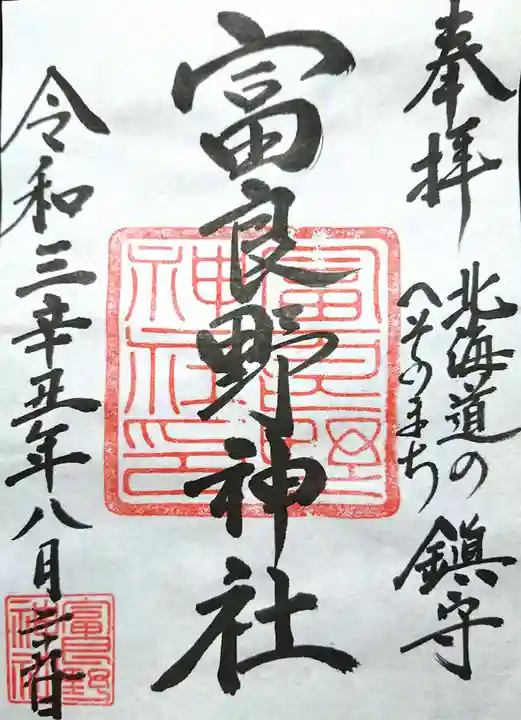 奉拝
北海道の
へそのまち
鎮守
富良野神社
富良野神社印
令和三辛丑年八月
富良野
神社